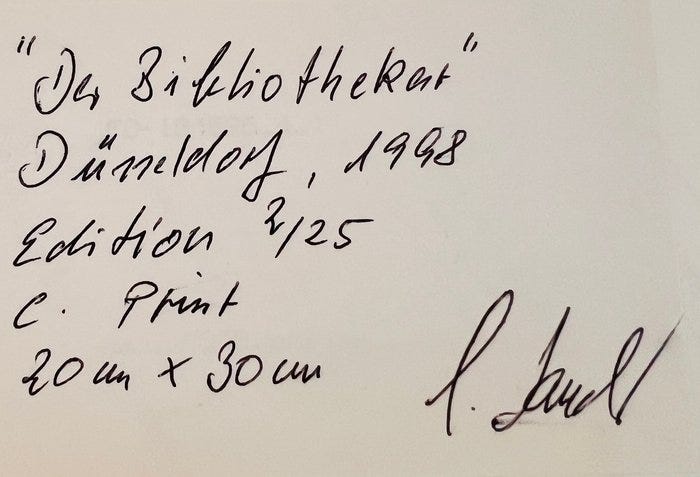 "Der Bibliothekar"
Düsseldorf, 1998
Edition 2/25
C. Print
20cm x 30cm